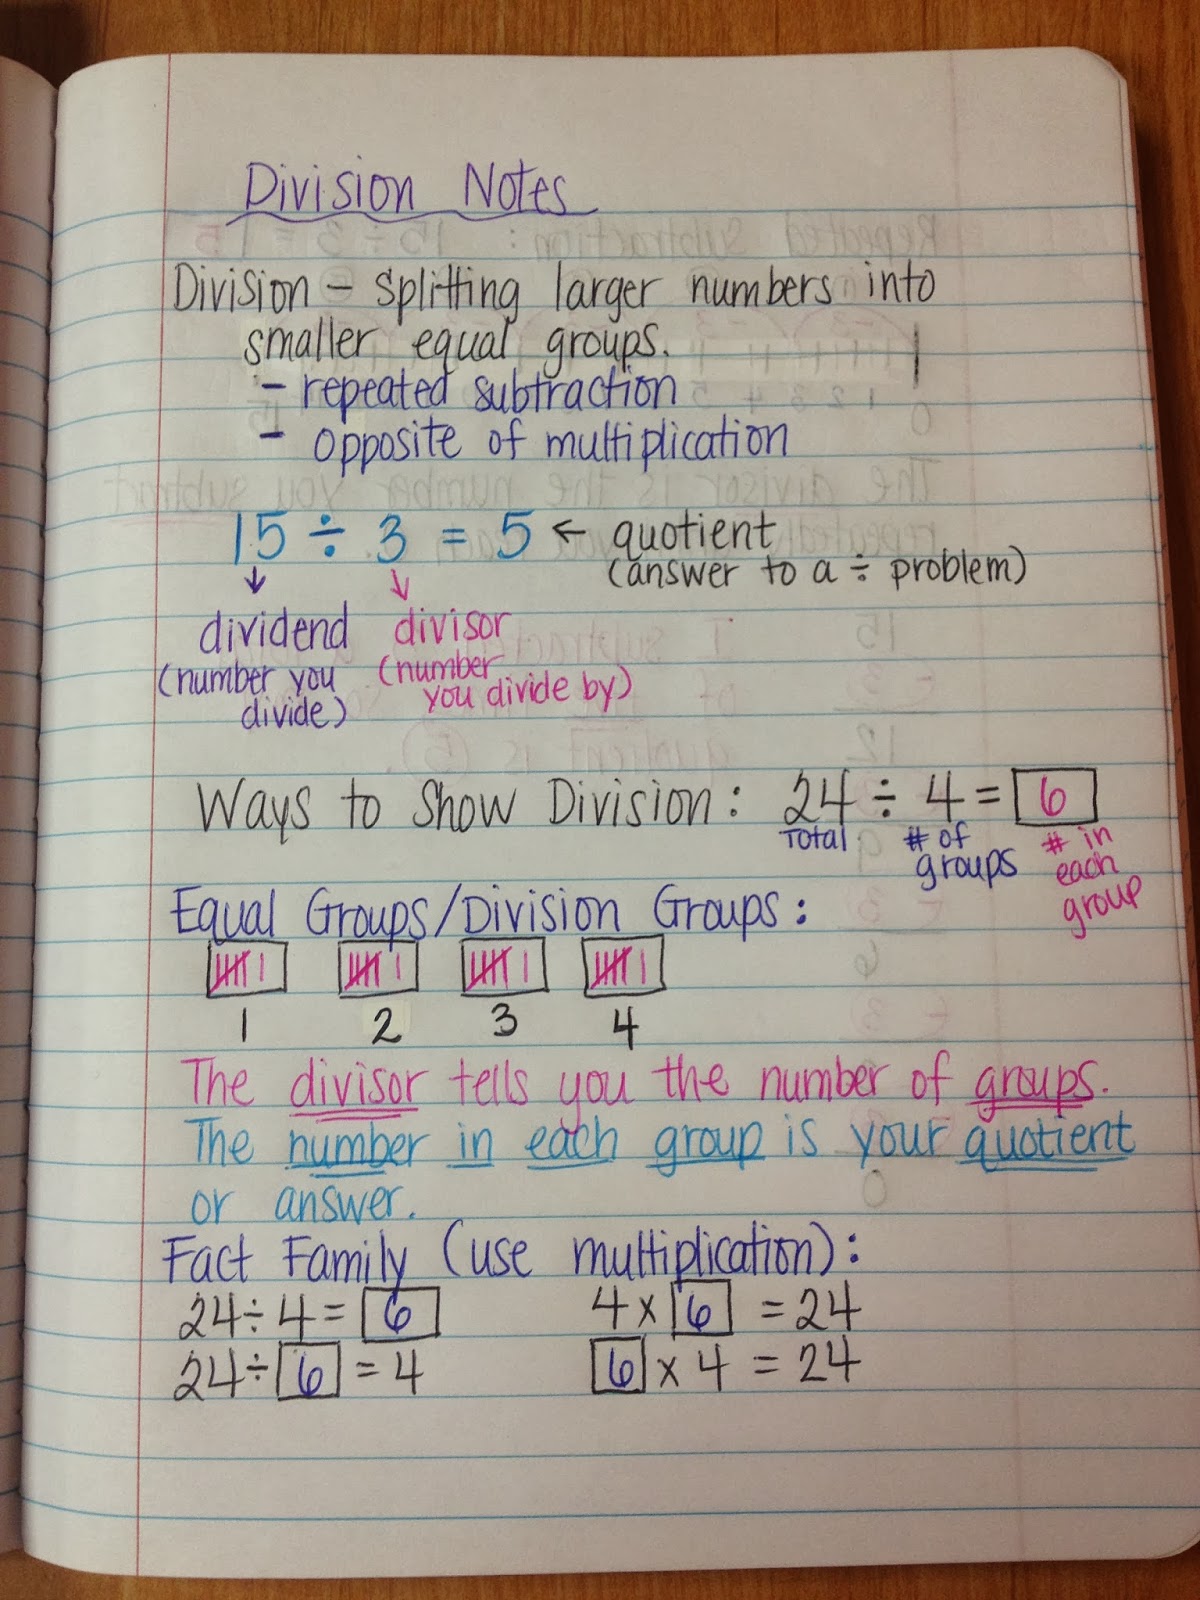 Division Notes
Division - splitting larger numbers into
smaller equal groups.
- repeated subtraction
- opposite of multiplication
15 ÷ 3 = 5 ← quotient
(answer to a ÷ problem)
↓ ↓
dividend divisor
(number you (number
divide) you divide by)
Ways to Show Division: 24 ÷ 4 = 6
Total # of groups # in each group
Equal Groups/Division Groups:
1 2 3 4
The divisor tells you the number of groups.
The number in each group is your quotient
or answer.
Fact Family (use multiplication):
24 ÷ 4 = 6 4 x 6 = 24
24 ÷ 6 = 4 6 x 4 = 24